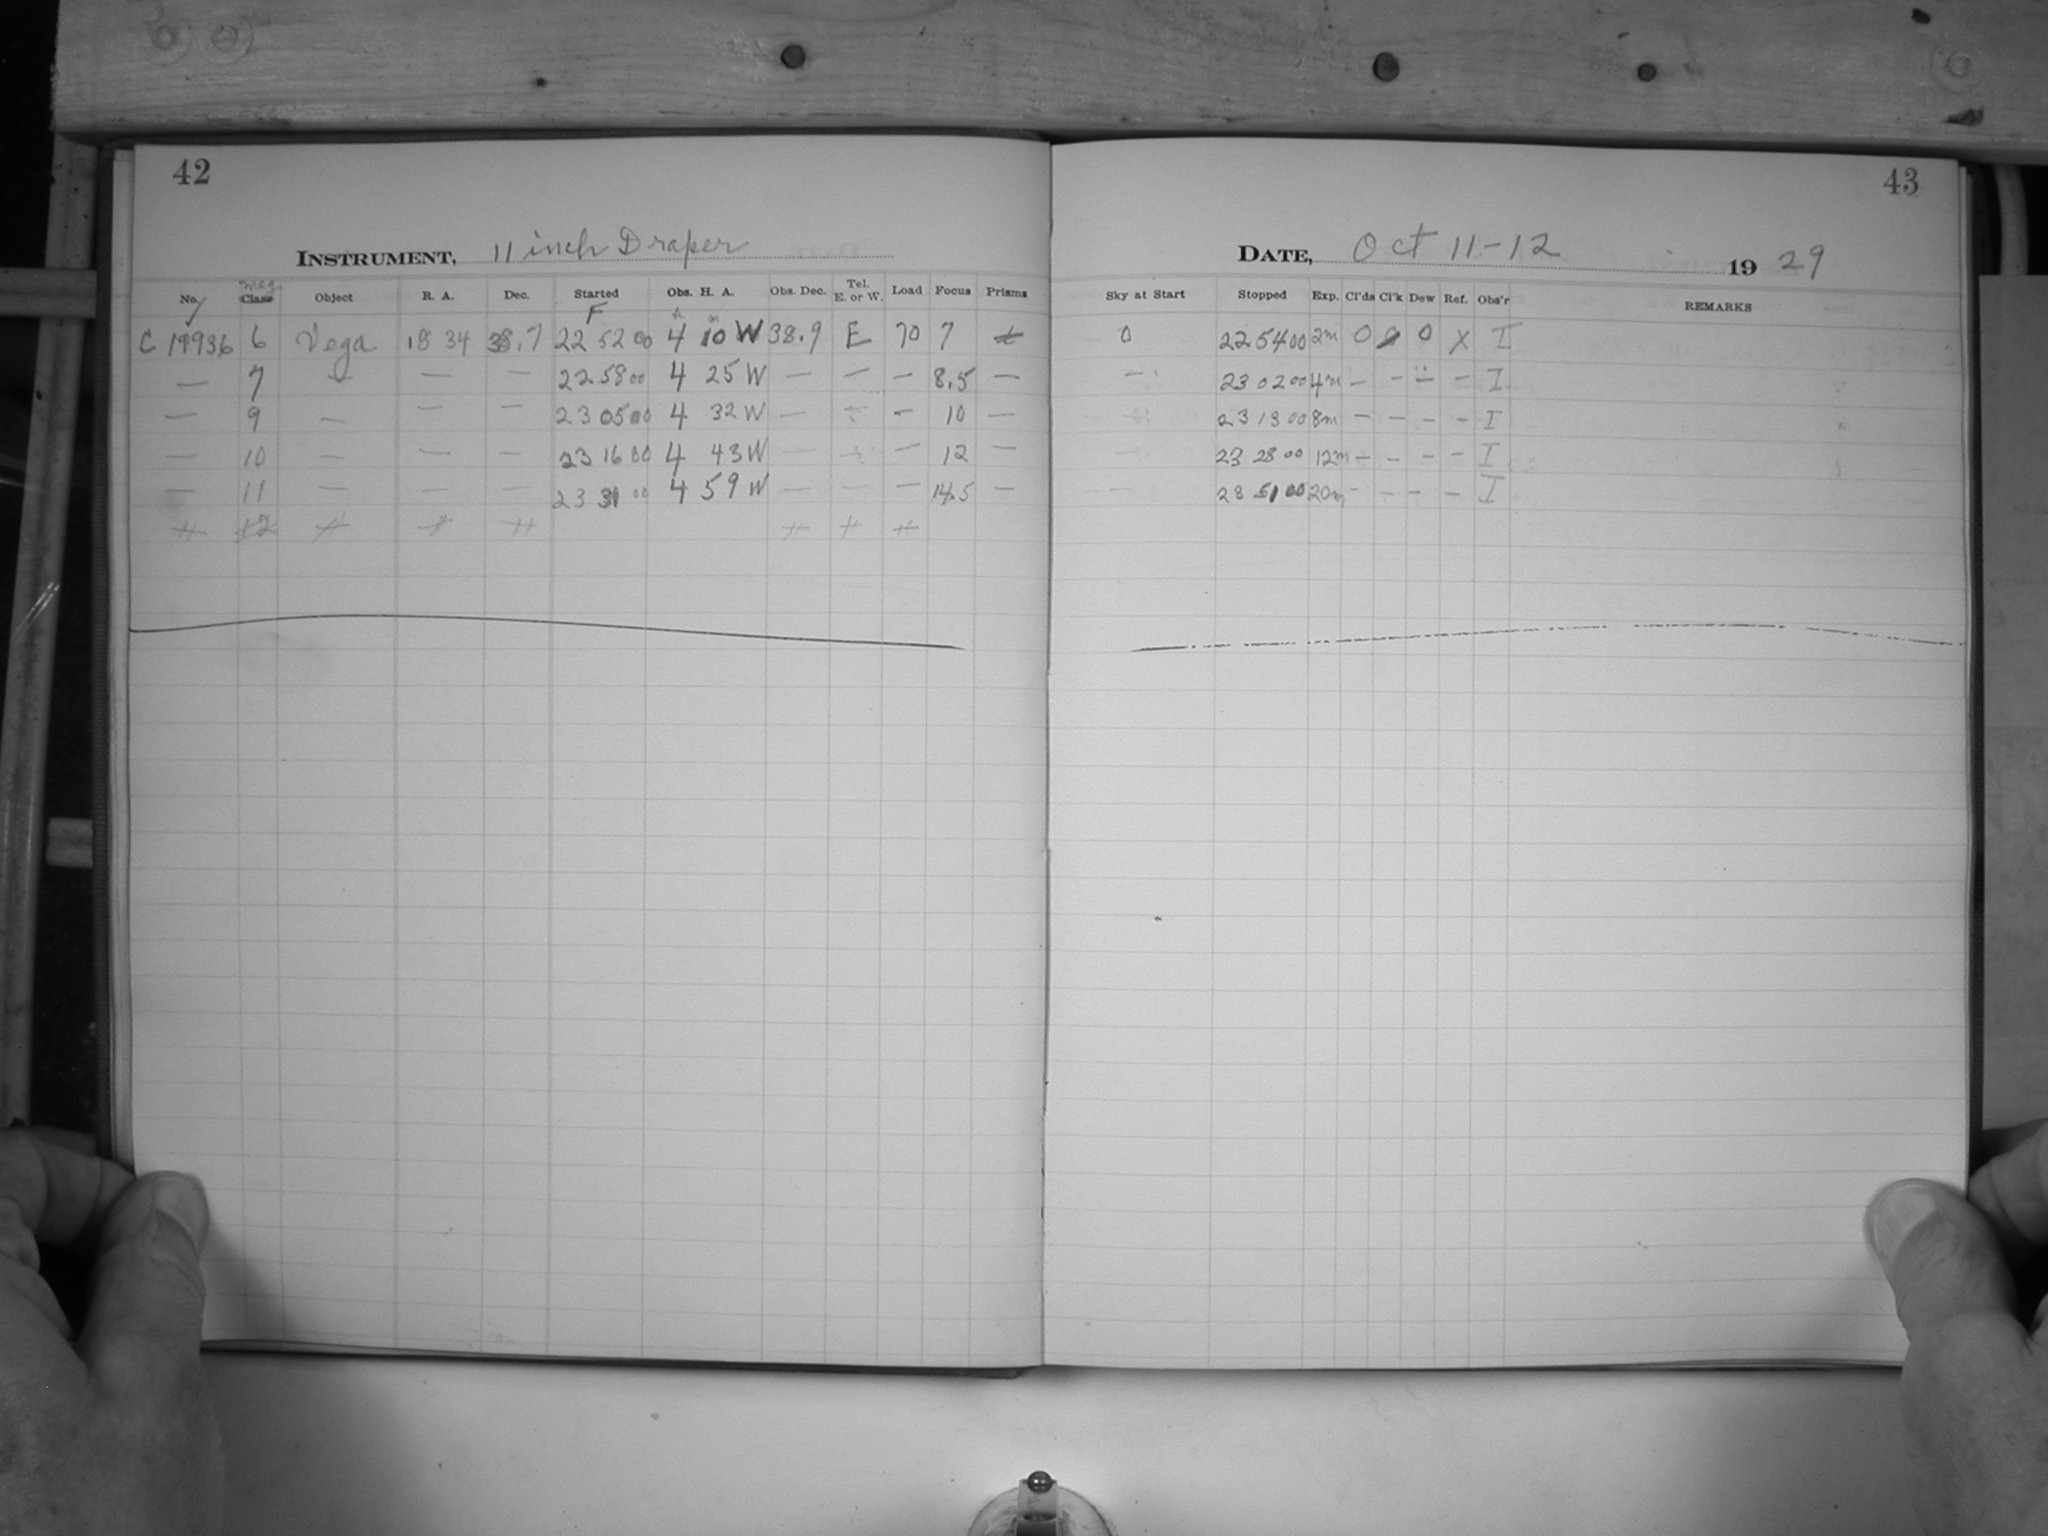 42
INSTRUMENT, 11 inch Draper
No. Class Object R. A. Dec. Started Obs. H. A. Obs. Dec. Tel. E. or W. Load Focus Prisms
mag
F
h m
C 19936 6 Vega 18 34 38.7 22 52 00 4 10 W 38.9 E 70 7
— 7 — — — 22 58 00 4 25 W — — — 8.5 —
— 9 — — — 23 05 00 4 32 W — — — 10 —
— 10 — — — 23 16 00 4 43 W — — — 12 —
— 11 — — — 23 31 00 4 59 W — — — 14.5 —
12
43
DATE, Oct 11-12 1929
Sky at Start Stopped Exp. Cl'ds Cl'k Dew Ref. Obs'r REMARKS
0 22 54 00 2m 0 0 X I
— 23 02 00 4m — — — — I
— 23 13 00 8m — — — — I
— 23 28 00 12m — — — — I
— 23 51 00 20m — — — — I